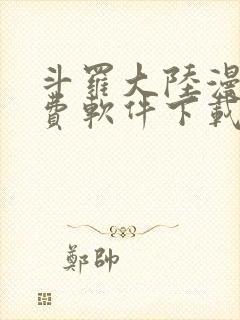 斗羅大陸漫
費軟件下載
鄭帥